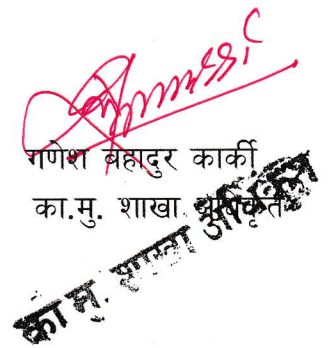 गणेश बहादुर कार्की
का.मु. शाखा अधिकृत
का.मु. शाखा अधिकृत